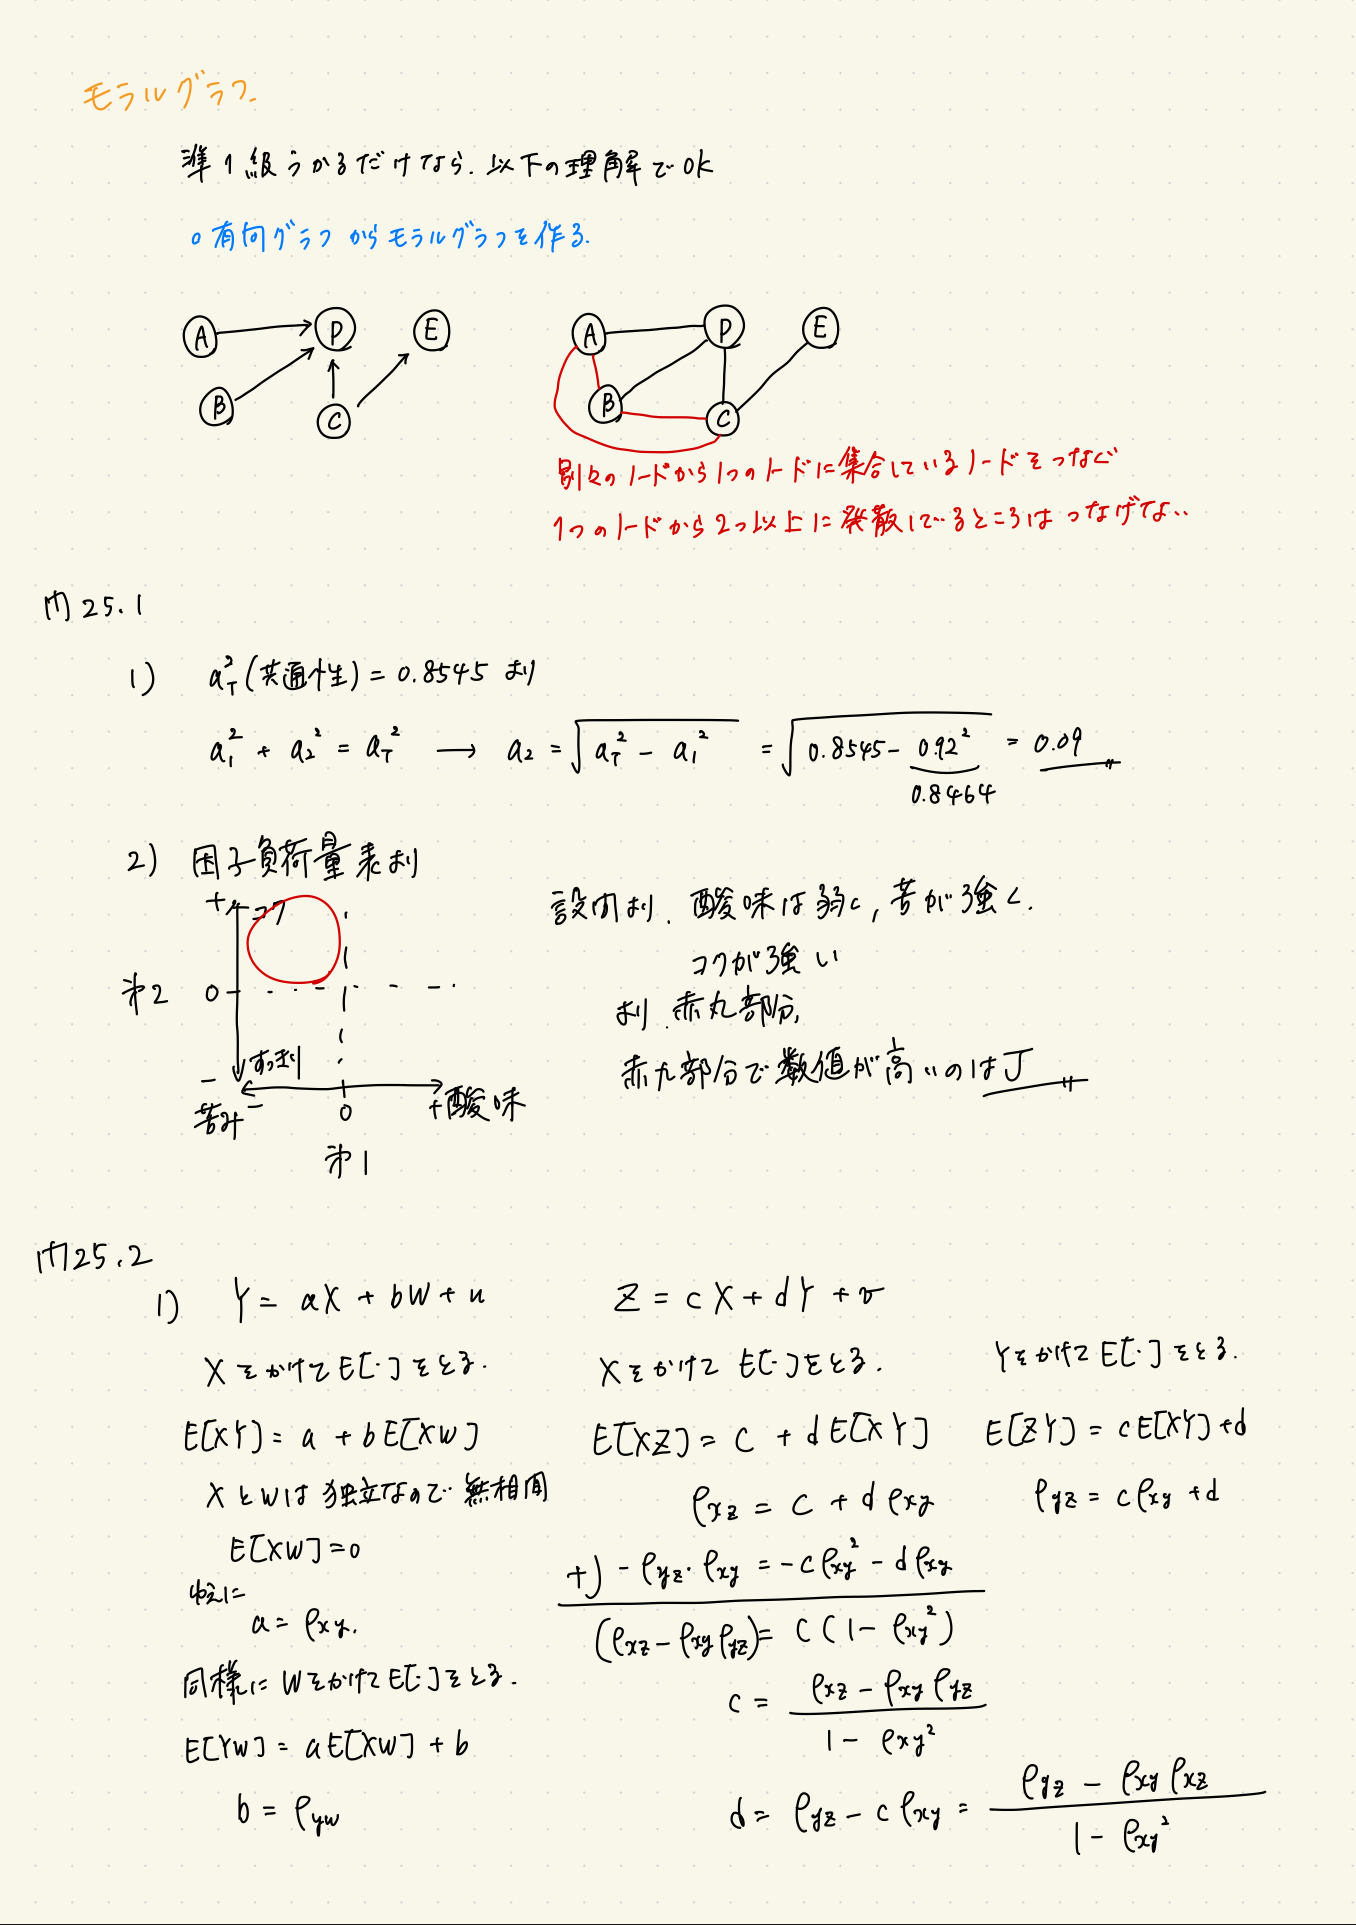 モラルグラフ.
準1級うかるだけなら.以下の理解でOK
○有向グラフからモラルグラフを作る.
A P E
B C
A P E
B C
別々のノードから1つのノードに集合しているノードをつなぐ
1つのノードから2つ以上に発散しているところはつなげない
問25.1
1) a_T^2 (共通性) = 0.8545 より
a_1^2 + a_2^2 = a_T^2 → a_2 = √(a_T^2 - a_1^2) = √(0.8545 - 0.92^2) = 0.09
0.8464
2) 因子負荷量表より
+ コク
第2 0
- すっきり
苦み - 0 + 酸味
第1
設問より.酸味は弱く,苦が強く.
コクが強い
より.赤丸部分,
赤丸部分で数値が高いのはJ
問25.2
1) Y = aX + bW + u
Xをかけて E[・]をとる.
E[XY] = a + bE[XW]
XとWは独立なので無相関
E[XW]=0
ゆえに
a = ρxy.
同様に Wをかけて E[・]をとる.
E[YW] = aE[XW] + b
b = ρyw
Z = cX + dY + v
Xをかけて E[・]をとる.
E[XZ] = c + dE[XY]
ρxz = c + dρxy
+) -ρyz・ρxy = -cρxy^2 - dρxy
(ρxz - ρxyρyz) = c(1 - ρxy^2)
c = (ρxz - ρxyρyz) / (1 - ρxy^2)
d = ρyz - cρxy = (ρyz - ρxyρxz) / (1 - ρxy^2)
Yをかけて E[・]をとる.
E[ZY] = cE[XY]+d
ρyz = cρxy + d